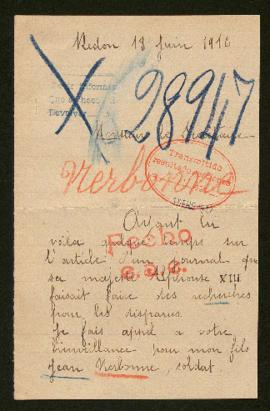 Redon 18 Juin 1916
28947
Monsieur
Nerbonne
Transmitido
Ayant lu
voila quelque temps sur
l'article d'un journal que
sa majesté Alphonse XIII
faisait faire des recherches
pour les disparus.
Je fais appel a votre
bienveillance pour mon fils
Jean Nerbonne, soldat
Fecho